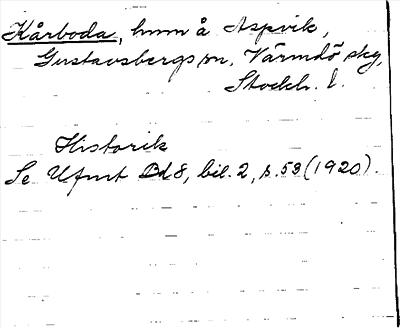 Kårboda, hmn å Aspvik,
Gustavsbergs sn, Värmdö skg,
Stockh. l.
Historik
Se Ufmt Bd 8, bil. 2, s. 53 (1920).